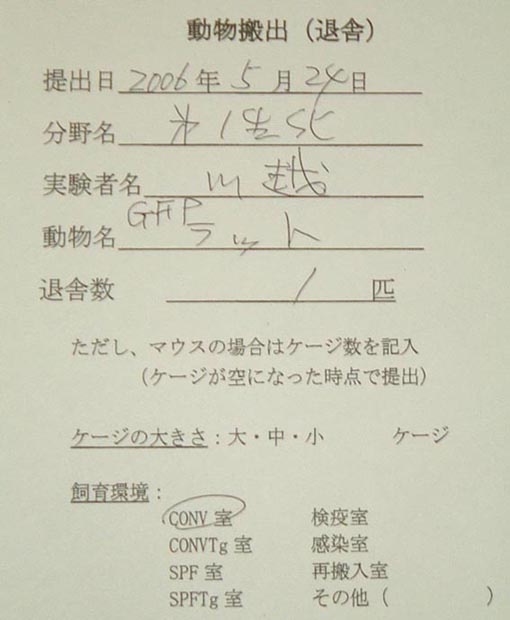 動物搬出（退舎）
提出日 2006年 5月 24日
分野名 第1生化
実験者名 川越
動物名 GFPラット
退舎数 1 匹
ただし、マウスの場合はケージ数を記入
（ケージが空になった時点で提出）
ケージの大きさ：大・中・小 ケージ
飼育環境：
CONV 室 検疫室
CONVTg 室 感染室
SPF 室 再搬入室
SPFTg 室 その他（ ）